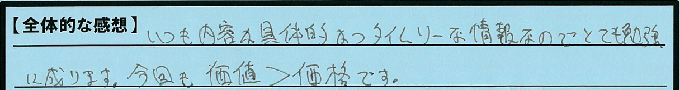 【全体的な感想】いつも内容が具体的かつタイムリーな情報なのでとても勉強
に成ります。今回も、価値>価格です。